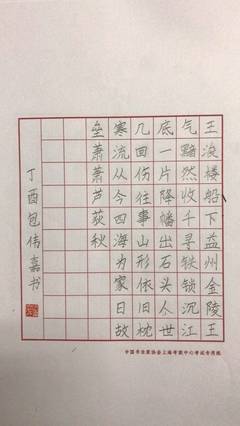 王浚楼船下益州金陵王
气黯然收千寻铁锁沉江
底一片降幡出石头人世
几回伤往事山形依旧枕
寒流从今四海为家日故
垒萧萧芦荻秋
丁酉包伟嘉书
中国书法家协会上海考级中心考试专用纸